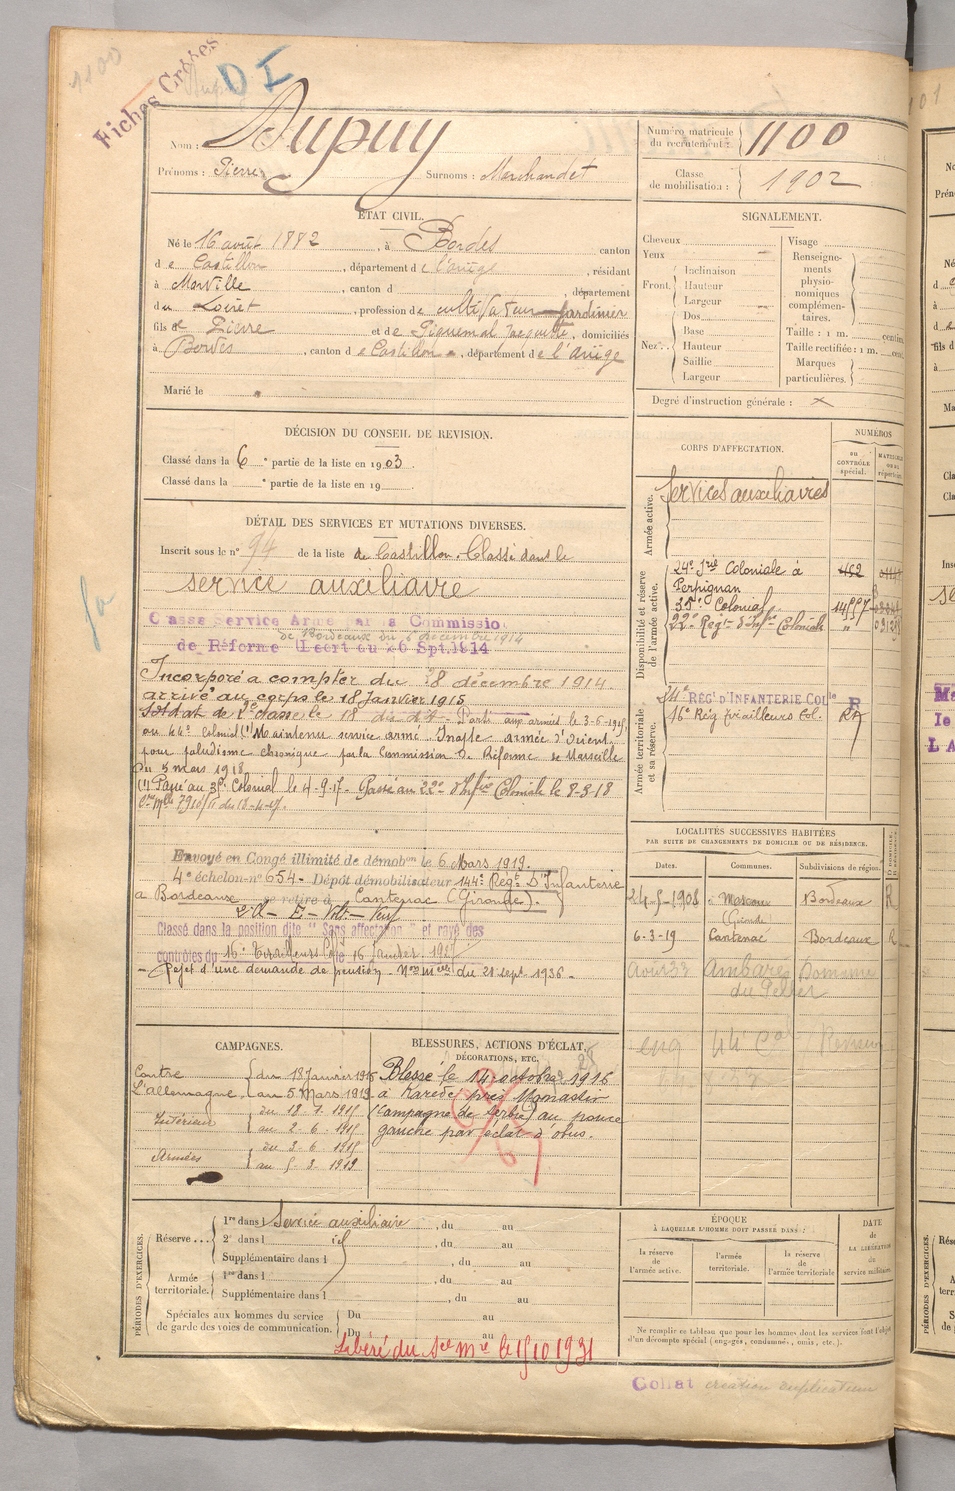 1100
Fiches Croisées
D I
Nom : Dupuy
Prénoms : Pierre Surnoms : Marchandet
Numéro matricule du recrutement : 1100
Classe de mobilisation : 1902
ÉTAT CIVIL.
Né le 16 août 1882, à Bordes canton
de Castillon, département de l'ariège, résidant
à Marville, canton d , département
du Loiret, profession de cultivateur jardinier
fils de Pierre et de Piquemal , domiciliés
à Bordes, canton de Castillon, département de l'ariège
Marié le
SIGNALEMENT.
Cheveux
Yeux
Front. Inclinaison
Hauteur
Largeur
Nez. Dos
Base
Hauteur
Saillie
Largeur
Visage
Renseignements physionomiques complémentaires.
Taille : 1 m. centim.
Taille rectifiée : 1 m. cent.
Marques particulières.
Degré d'instruction générale : x
DÉCISION DU CONSEIL DE REVISION.
Classé dans la 6e partie de la liste en 1903.
Classé dans la e partie de la liste en 19
DÉTAIL DES SERVICES ET MUTATIONS DIVERSES.
Inscrit sous le n° 94 de la liste de Castillon. Classé dans le
service auxiliaire
Classé Service Armé par la Commission
de Bordeaux du 6 décembre 1914
de Réforme (Décret du 26 Spt. 1914
Incorporé à compter du 18 décembre 1914.
arrivé au corps le 18 Janvier 1915
Soldat de 2e classe le 18 dis dit - Parti aux armées le 3-6-1915
au 44e Colonial (1) Maintenu service armé. Inapte armée d'Orient
pour paludisme chronique par la Commission D. Réforme de Marseille
du 5 mars 1918
(1) Passé au 35e Colonial le 4-9-17 - Passé au 22e d'Infie Coloniale le 8-3-18
Envoyé en Congé illimité de démobon le 6 Mars 1919.
4e échelon n° 654 - Dépôt démobilisateur 144e Régt D'Infanterie
a Bordeaux se retire à Cantenac (Gironde).
Classé dans la position dite " Sans affectation " et rayé des
contrôles du 16e Tirailleurs Col le 16 janvier 1927
- Rejet d'une demande de pension - Non du 21 sept 1936 -
CORPS D'AFFECTATION.
NUMÉROS
au CONTRÔLE spécial.
MATRICULE
Armée active.
Services auxiliaires
Disponibilité et réserve de l'armée active.
24e Irie Coloniale à Perpignan
35e Colonial 14557
22e Régt d'Infie Coloniale "
Armée territoriale et sa réserve.
24e RÉGt D'INFANTERIE COLle R
16e Rég tirailleurs Col.
LOCALITÉS SUCCESSIVES HABITÉES
PAR SUITE DE CHANGEMENTS DE DOMICILE OU DE RÉSIDENCE.
Dates. Communes. Subdivisions de région.
24-5-1908 (Gironde) Bordeaux R
6-3-19 Cantenac Bordeaux R
Août 33 Ambarès Domaine
CAMPAGNES.
Contre L'allemagne du 18 Janvier 1915 au 5 Mars 1919.
Intérieur du 18-1-1915 au 2-6-1915
Armées du 3-6-1915 au 5-3-1919
BLESSURES, ACTIONS D'ÉCLAT,
DÉCORATIONS, ETC.
Blessé le 14 octobre 1916
à près Monastir
(Campagne de Serbie) au pouce
gauche par éclat d'obus.
PÉRIODES D'EXERCICES.
Réserve... 1re dans l Service auxiliaire, du au
2e dans l id, du au
Supplémentaire dans l , du au
Armée territoriale. 1re dans l , du au
Supplémentaire dans l , du au
Spéciales aux hommes du service de garde des voies de communication. Du au
Du au
Libéré du Sce Mre le 15/10 1931
ÉPOQUE
À LAQUELLE L'HOMME DOIT PASSER DANS :
la réserve de l'armée active.
l'armée territoriale.
la réserve de l'armée territoriale
DATE de LA LIBÉRATION du service militaire.
Ne remplir ce tableau que pour les hommes dont les services font l'objet
d'un décompte spécial (engagés, condamnés, omis, etc.).